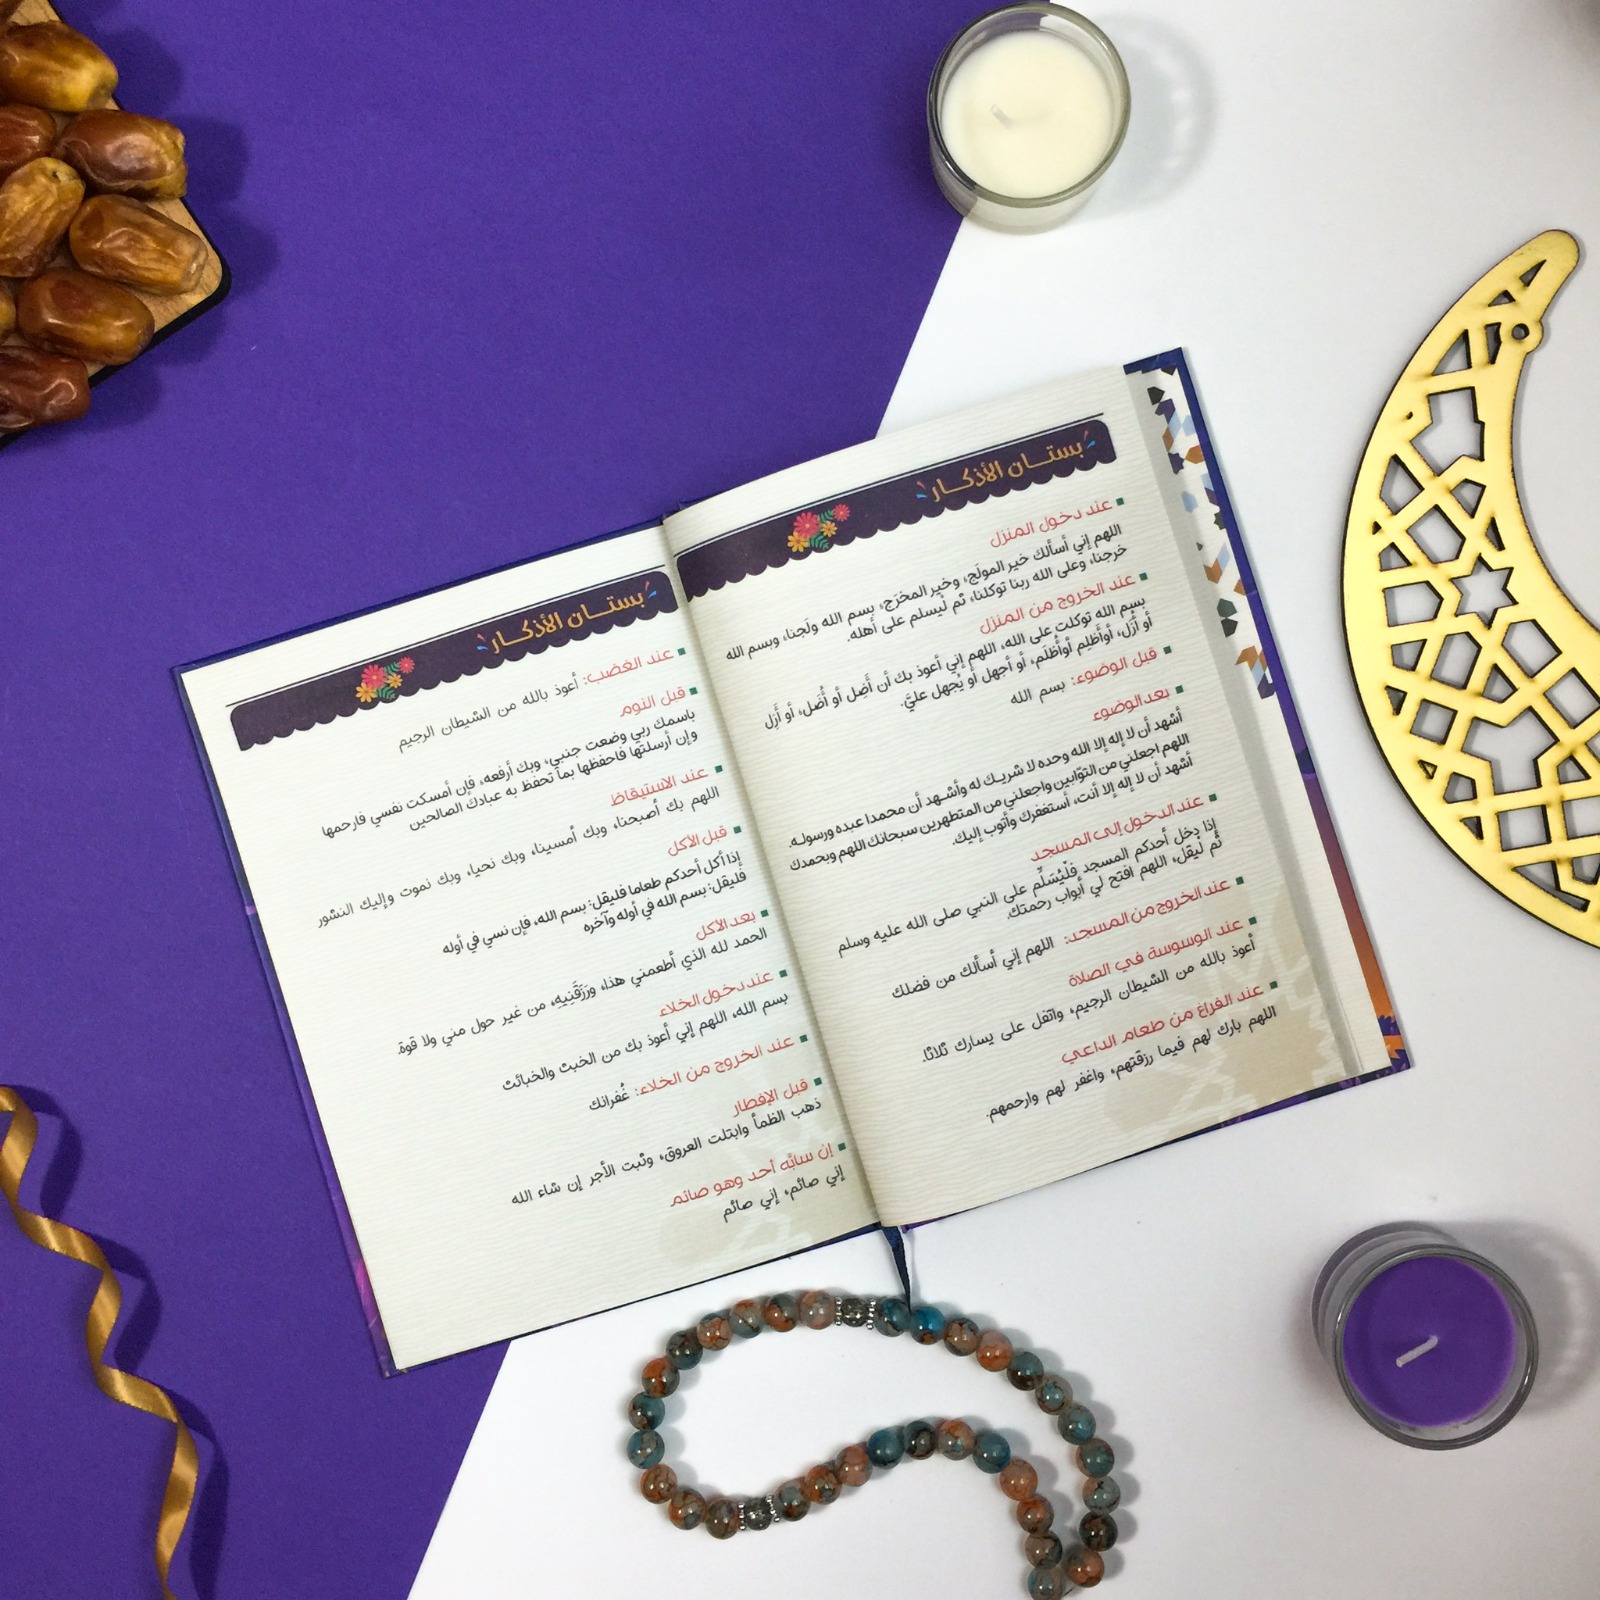 بستــان الأذكــار
عند دخول المنزل
اللهم إني أسألك خير المولَج، وخير المخرَج، بسم الله ولَجنا، وبسم الله
خرجنا، وعلى الله ربنا توكلنا، ثم ليسلم على أهله.
عند الخروج من المنزل
بسم الله توكلت على الله، اللهم إني أعوذ بك أن أَضِل أو أُضَل، أو أَزِل
أو أُزَل، أوأَظلِم أوأُظلَم، أو أجهل أو يُجهل عليَّ.
قبل الوضوء: بسم الله
بعد الوضوء
أشهد أن لا إله إلا الله وحده لا شريــك له وأشــهد أن محمدا عبده ورسولـه.
اللهم اجعلني من التوّابين واجعلني من المتطهرين سبحانك اللهم وبحمدك
أشهد أن لا إله إلا أنت، أستغفرك وأتوب إليك.
عند الدخول إلى المسجد
إذا دخل أحدكم المسجد فلْيُسَلِّم على النبي صلى الله عليه وسلم
ثُم ليقل، اللهم افتح لي أبواب رحمتك.
عند الخروج من المسجد: اللهم إني أسألك من فضلك
عند الوسوسة في الصلاة
أعوذ بالله من الشيطان الرجيم، واتفل على يسارك ثلاثا.
عند الفراغ من طعام الداعي
اللهم بارك لهم فيما رزقتهم، واغفر لهم وارحمهم.
بستــان الأذكــار
عند الغضب: أعوذ بالله من الشيطان الرجيم
قبل النوم
باسمك ربي وضعت جنبي، وبك أرفعه، فإن أمسكت نفسي فارحمها
وإن أرسلتها فاحفظها بما تحفظ به عبادك الصالحين
عند الاستيقاظ
اللهم بك أصبحنا، وبك أمسينا، وبك نحيا، وبك نموت وإليك النشور
قبل الأكل
إذا أكل أحدكم طعاما فليقل: بسم الله، فإن نسي في أوله
فليقل: بسم الله في أوله وآخره
بعد الأكل
الحمد لله الذي أطعمني هذا، ورَزَقَنِيهِ، من غير حول مني ولا قوة.
عند دخول الخلاء
بسم الله، اللهم إني أعوذ بك من الخبث والخبائث
عند الخروج من الخلاء: غُفرانك
قبل الإفطار
ذهب الظمأ وابتلت العروق، وثبت الأجر إن شاء الله
إن سابّه أحد وهو صائم
إني صائم، إني صائم